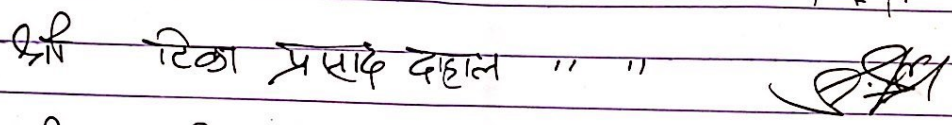 श्री टिका प्रसाद दाहाल " "